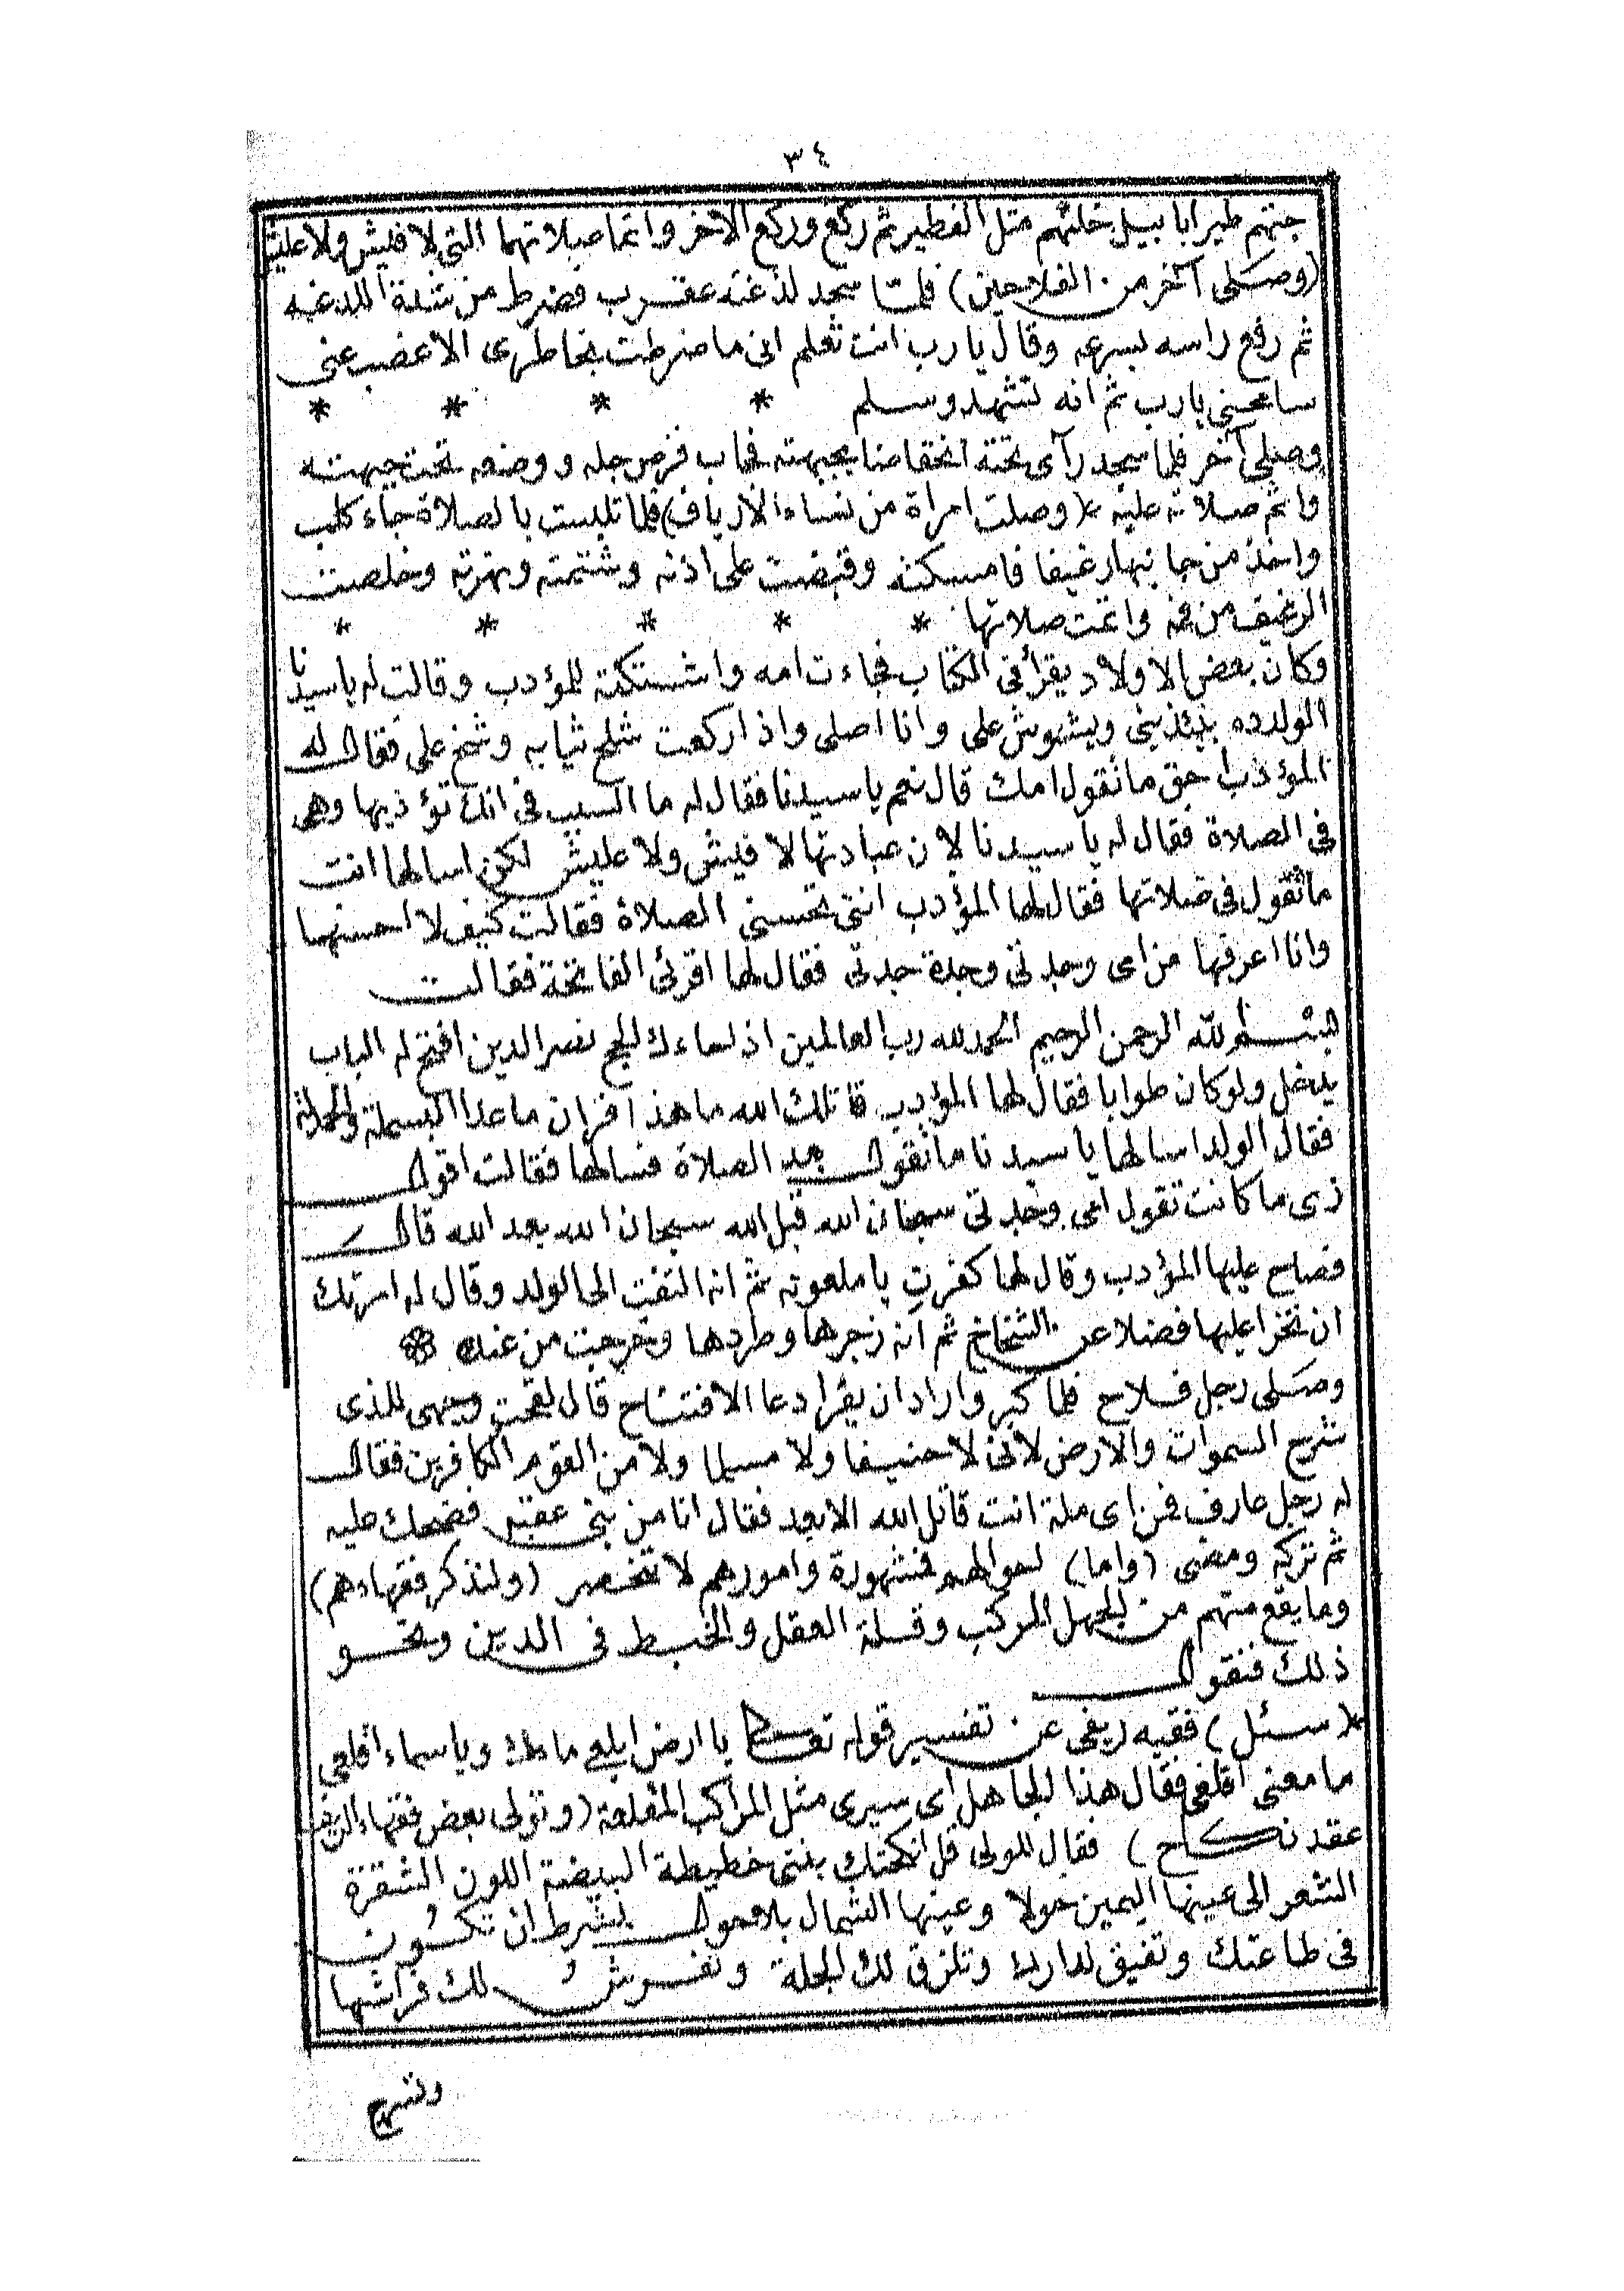 ٣٤
جتهم طيرا بابيل خلتهم متل الفطير ثم ركع وركع الاخر واتما صلاتهما التي لا فليش ولا عليش
(وصلى آخر من الفلاحين) فلما سجد لذغته عقرب فضرط من شدة اللدغه
ثم رفع راسه بسرعه وقال يارب انت تعلم انى ما ضرطت بخاطرى الا غضب عنى
سامحنى يارب ثم انه تشهد وسلم * * * *
وصلى آخر فلما سجد رآى تحته انخفاضا بجبهته فجاب فرض جله ووضعه تحت جبهته
واتم صلاته عليه * (وصلت امراة من نساء الارياف) فلما تلبست بالصلاة جاء كلب
واخذ من جانبها رغيفا فامسكته وقبضت على اذنه وشتمته ونهرته وخلصت
الرغيف من فمه واتمت صلاتها * * * * *
وكان بعض الاولاد يقرأ فى الكتاب فجاءت امه واشتكته للمؤدب وقالت له ياسيدنا
الولد ده بيئذينى ويشوش على وانا اصلى واذا ركعت شلح ثيابه وشخ على فقال له
المؤدب احق ما تقول امك قال نعم ياسيدنا فقال له ما السبب فى انك تؤذيها وهى
فى الصلاة فقال له ياسيدنا لان عبادتها لا فليش ولا عليش لكن اسالها انت
ماتقول فى صلاتها فقال لها المؤدب انتى تحسنى الصلاة فقالت كيف لا احسنها
وانا اعرفها من امى وجدتى وجدة جدتى فقال لها اقرئى الفاتحة فقالت
بسم الله الرحمن الرحيم الحمد لله رب العالمين اذا جاءك الحج نصر الدين افتح له الباب
يدخل ولو كان طوابا فقال لها المؤدب قاتلك الله ما هذا قران ما عدا البسملة والحمدلة
فقال الولد اسالها ياسيدنا ماتقول بعد الصلاة فسالها فقالت اقول
زى ما كانت تقول امى وجدتى سبحان الله قبل الله سبحان الله بعد الله قال
فصاح عليها المؤدب وقال لها كفرت ياملعونه ثم انه التفت الى الولد وقال له امرتك
ان تخرا عليها فضلا عن الشخاخ ثم انه زجرها وطردها وخرجت من عنده
وصلى رجل فلاح فلما كبر واراد ان يقرا دعا الافتتاح قال لقحت وجهى للذى
شرح السموات والارض لانى لا حنيفا ولا مسلما ولا من القوم الكافرين فقال
له رجل عارف فمن اى ملة انت قاتل الله الابعد فقال انا من بنى عقبه فضحك عليه
ثم تركه ومضى (واما) احوالهم فمشهورة وامورهم لا تنحصر (ولنذكر فقهاءهم)
وما يقع منهم من الجهل المركب وقلة العقل والخبط فى الدين ونحو
ذلك فنقول
* (سئل) فقيه ريفى عن تفسير قوله تعالى يا ارض ابلعى ماءك وياسماء اقلعى
ما معنى اقلعى فقال هذا الجاهل اى سيرى مثل المراكب المقلعة (وتولى بعض فقهاء الريف
عقد نكاح) فقال للولى قل انكحتك بنتى خطيطة البيضة اللون الشقرة
الشعر الى عينها اليمين حولا وعينها الشمال بلا حول بشرط ان تكون
فى طاعتك وتفيق لدارك وتلزق لك الجلة وتفرش لك فراشها